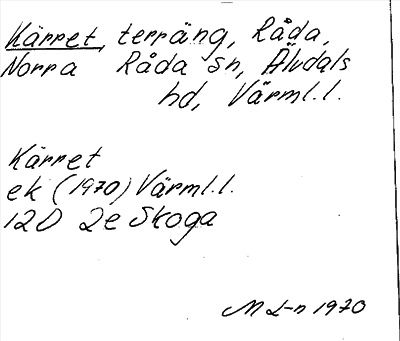 Kärret, terräng, Råda,
Norra Råda sn, Älvdals
hd, Värml.l.
Kärret
ek (1970) Värml.l.
12D 2e Skoga
M L-n 1970